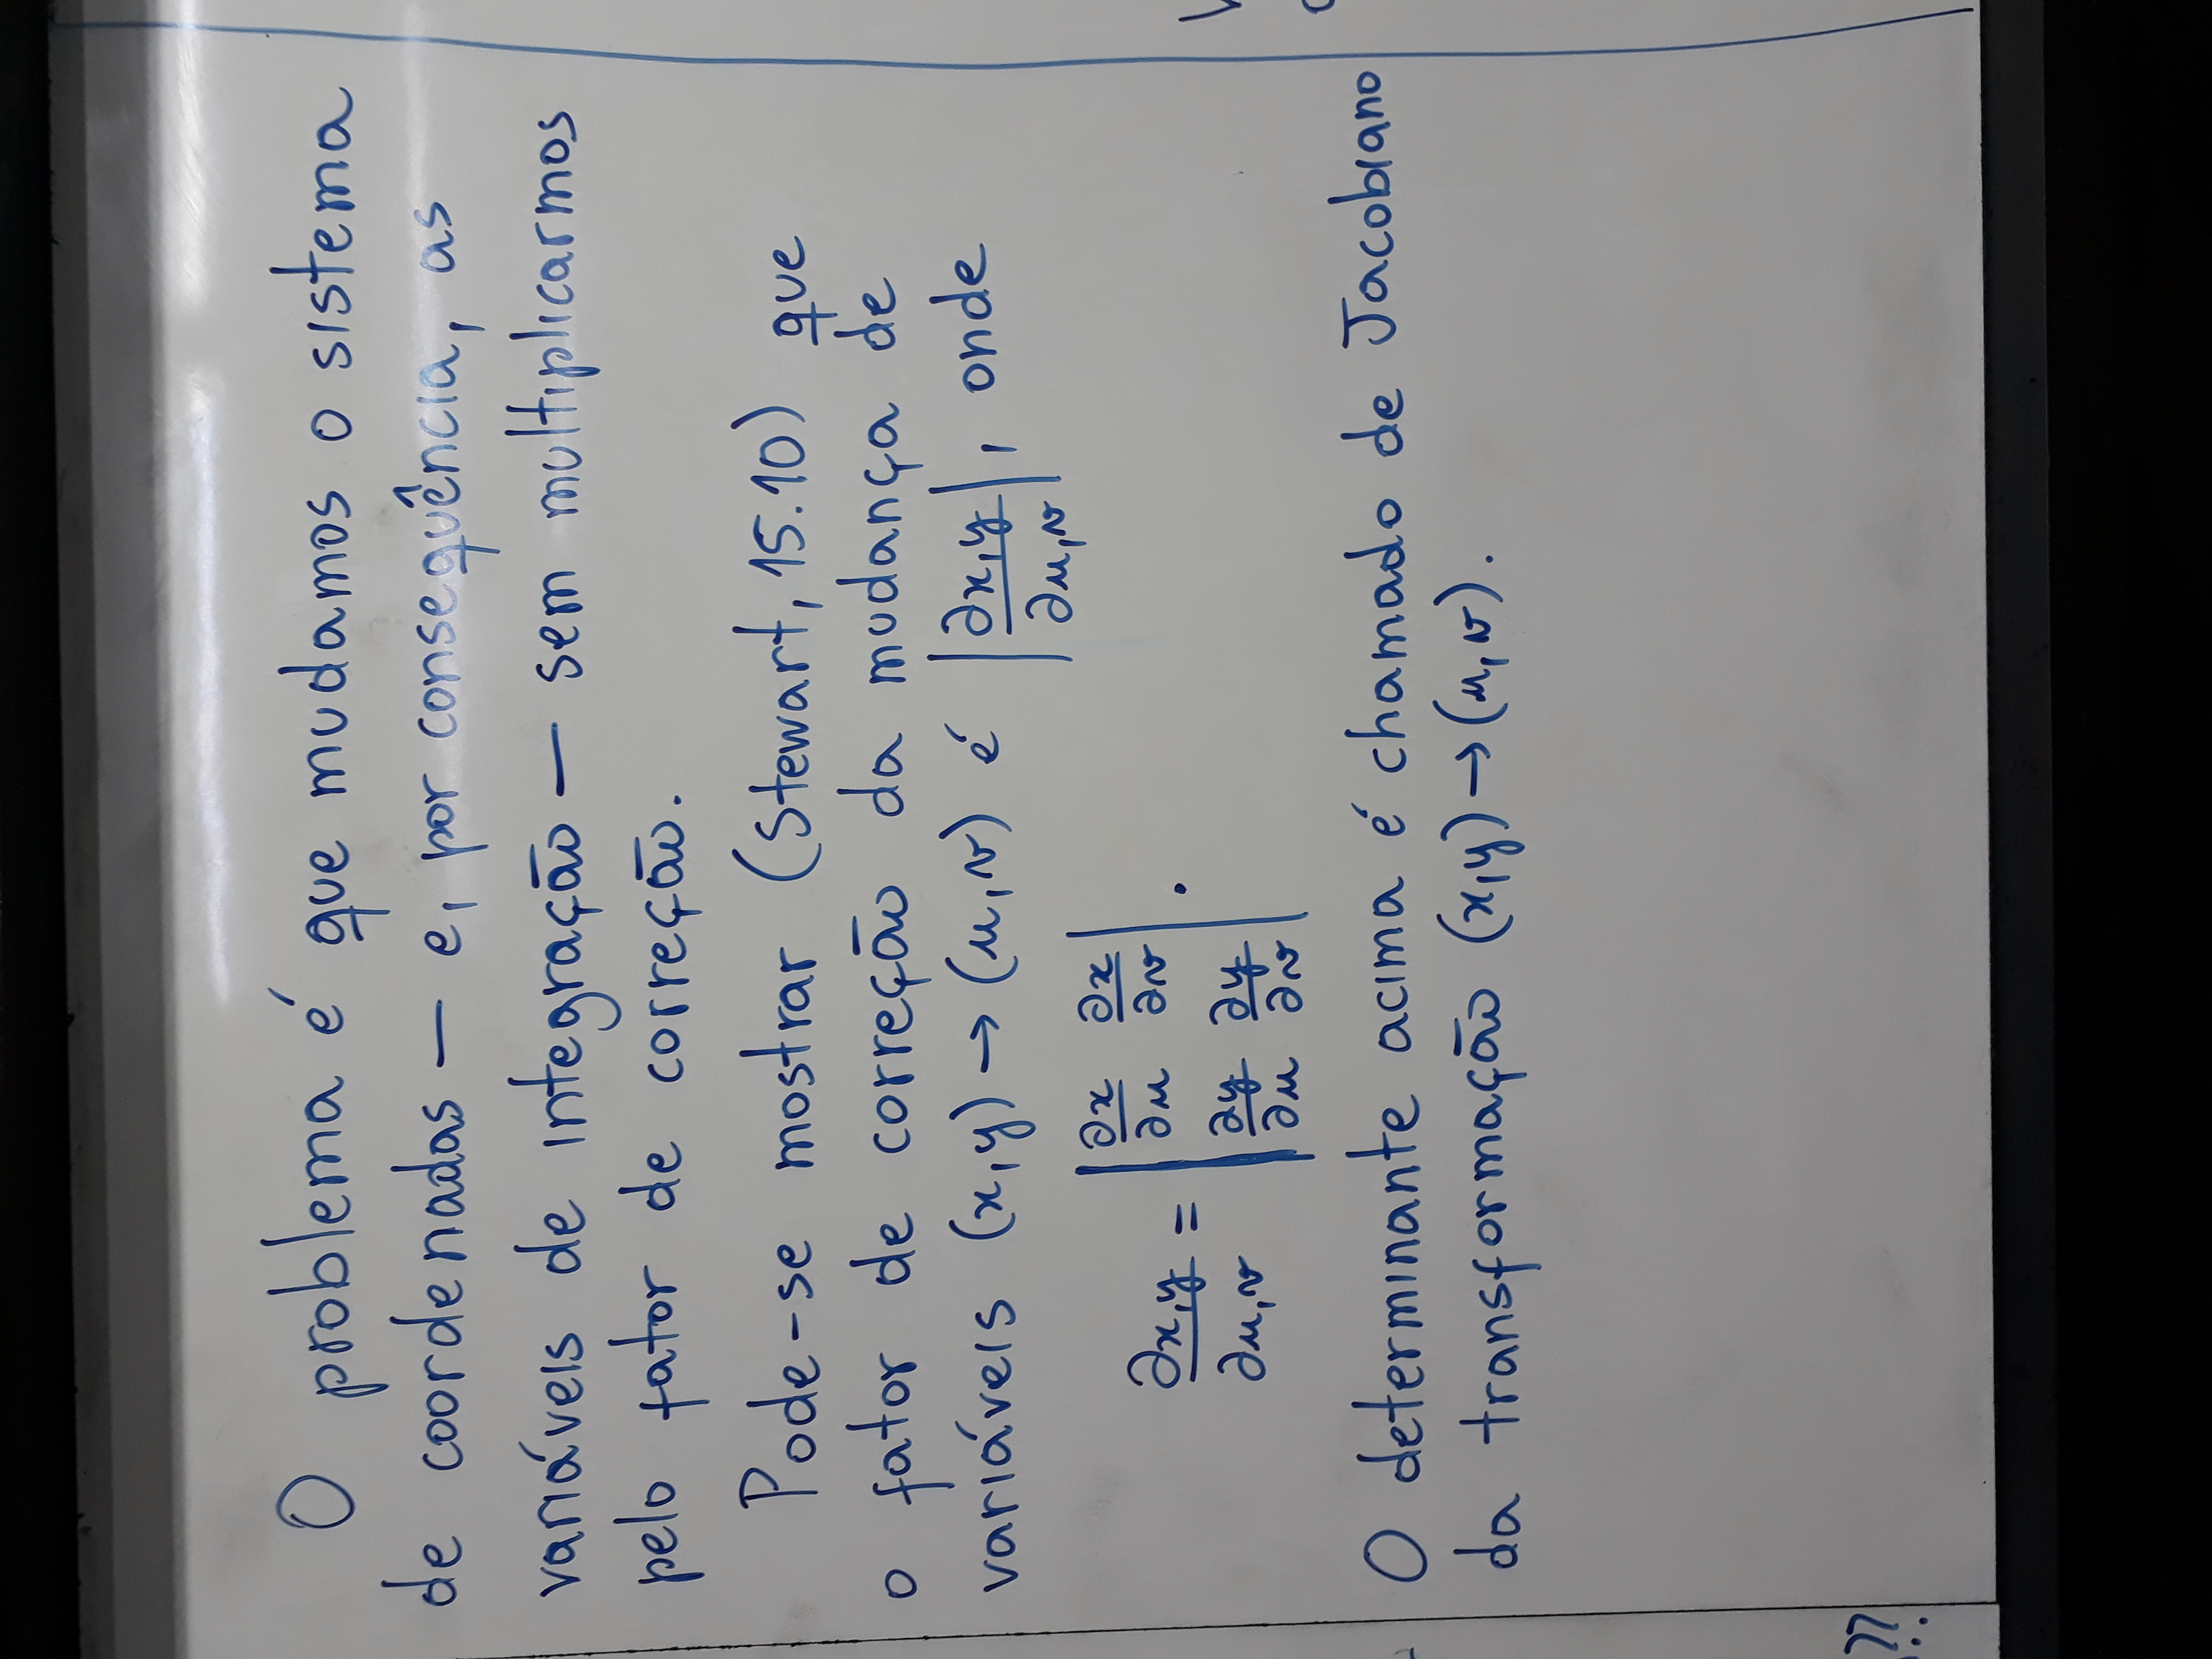 O problema é que mudamos o sistema
de coordenadas — e, por consequência, as
variáveis de integração — sem multiplicarmos
pelo fator de correção.
Pode-se mostrar (Stewart, 15.10) que
o fator de correção da mudança de
variáveis (x,y) → (u,v) é |∂x,y / ∂u,v|, onde
∂x,y / ∂u,v = | ∂x/∂u ∂x/∂v ; ∂y/∂u ∂y/∂v | .
O determinante acima é chamado de Jacobiano
da transformação (x,y) → (u,v).
??